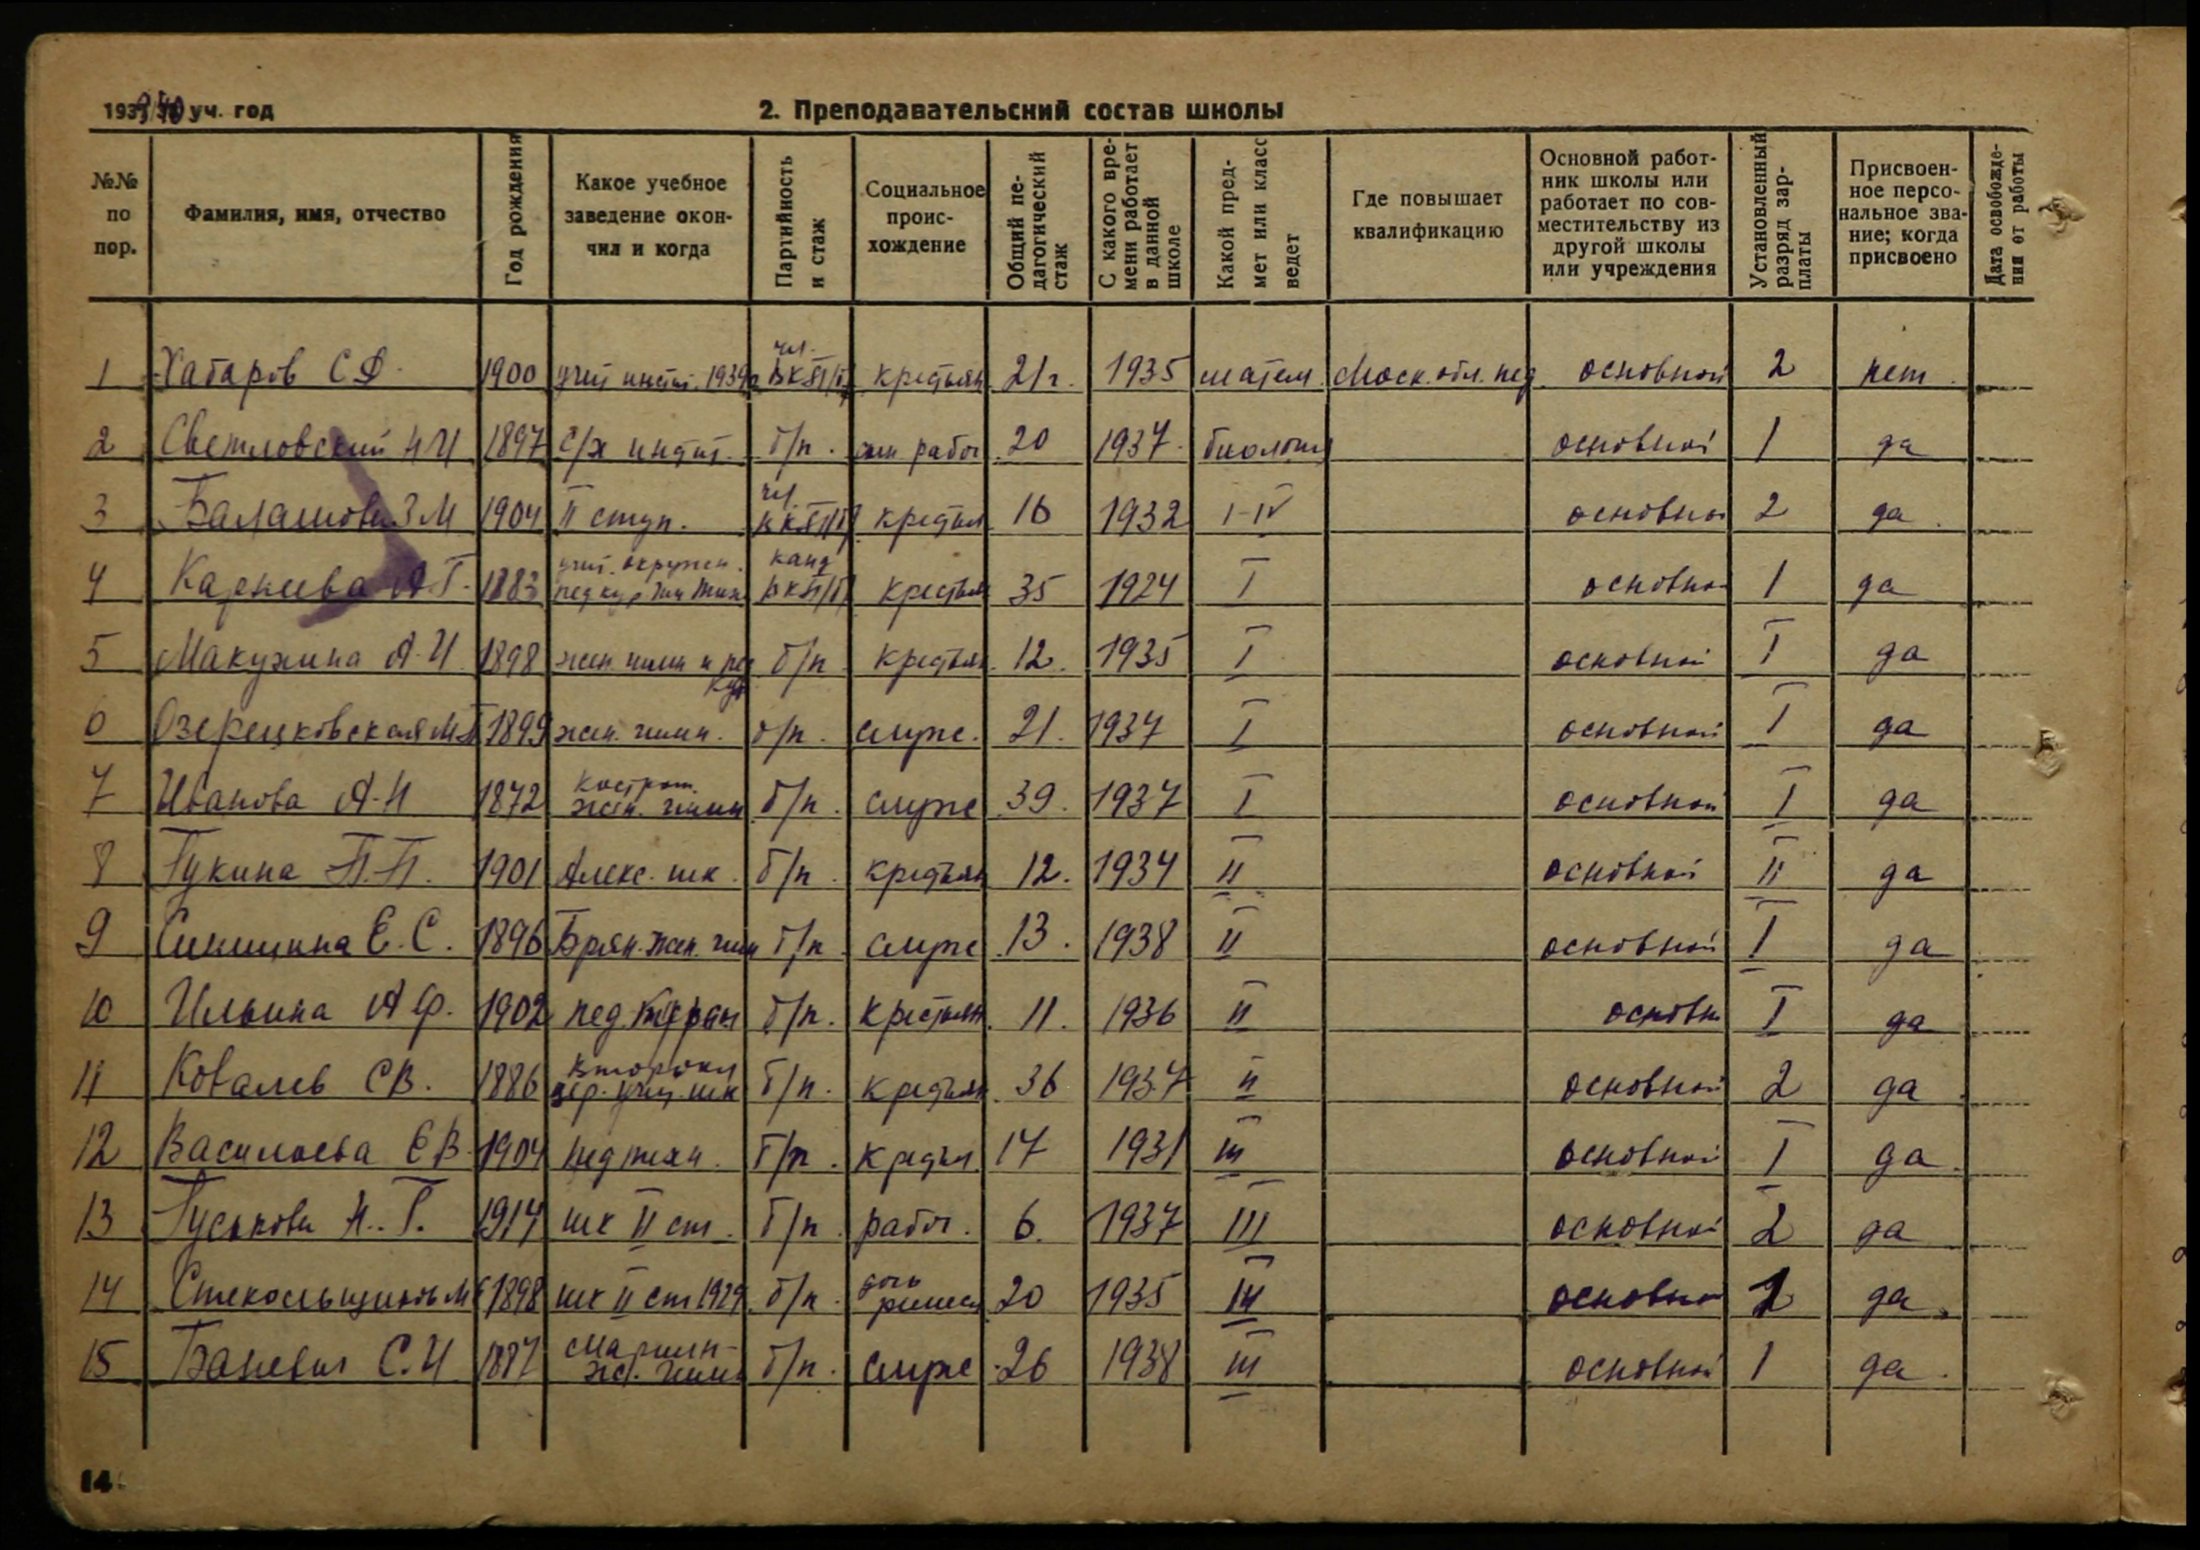 1939/40 уч. год
2. Преподавательский состав школы
№№ по пор. Фамилия, имя, отчество Год рождения Какое учебное заведение окончил и когда Партийность и стаж Социальное происхождение Общий педагогический стаж С какого времени работает в данной школе Какой предмет или класс ведет Где повышает квалификацию Основной работник школы или работает по совместительству из другой школы или учреждения Установленный разряд зарплаты Присвоенное персональное звание; когда присвоено Дата освобождения от работы
1 Хабаров С Ф. 1900 учит инстит. 1939г чл. ВКП/б/ крестьян 21г. 1935 матем. Моск. обл. пед. основной 2 нет
2 Светловский Н И 1897 С/х инстит. б/п. рабоч 20 1937. биология основной 1 да
3 Балашова З М 1904 II ступ. чл ВКП/б/ крестьян 16 1932 I-IV основной 2 да
4 Карнеева А.Г. 1883 учит. окружн. пед кур канд ВКП/б/ крестьян 35 1924 I основной 1 да
5 Макухина А.И. 1898 жен гимн и пед кур б/п. крестьян. 12. 1935 I основной I да
6 Озерецковская М П 1899 жен. гимн. б/п. служ. 21. 1937 I основной I да
7 Иванова А.Н 1872 Костром. жен. гимн б/п. служ 39. 1937 I основной I да
8 Гукина П.П. 1901 Алекс. шк. б/п. крестьян 12. 1934 II основной II да
9 Синицина Е.С. 1896 Брян. жен. гимн б/п. служ 13. 1938 II основной I да
10 Ильина А Ф. 1902 пед. б/п. крестьян. 11. 1936 II основн I да
11 Ковалев С В. 1886 второкл цер. учит. шк б/п. крестьян. 36 1937 II основной 2 да
12 Васильева Е В. 1904 пед техн. б/п. крестьян. 17 1931 III основной I да
13 Гуськова Н. Г. 1914 шк II ст. б/п. рабоч. 6. 1937 III основной 2 да
14 Стекольщикова М 1898 шк II ст 1929 б/п. дочь ремесл 20 1935 III основной да
15 Баневич С.И 1887 Мариин- ж. гимн б/п. служ 26 1938 III основной 1 да
14